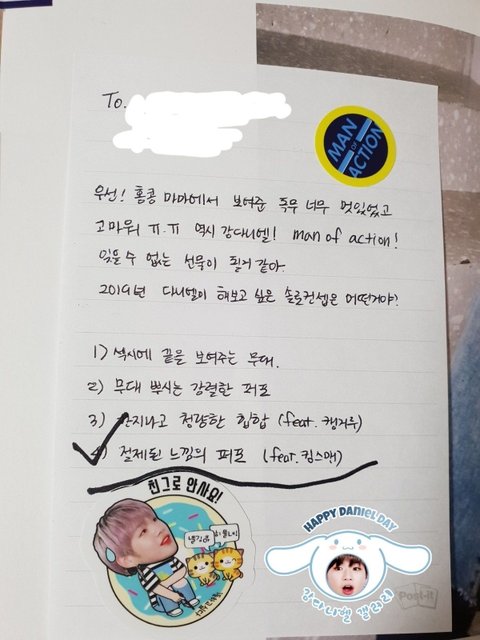 To.
MAN
OF
ACTION
우선! 홍콩 마마에서 보여준 독무 너무 멋있었고
고마워 ㅠ.ㅠ 역시 강다니엘! man of action!
잊을 수 없는 선물이 될거 같아.
2019년 다니엘이 해보고 싶은 솔로컨셉은 어떤거야?
1) 섹시에 끝을 보여주는 무대.
2) 무대 뿌시는 강렬한 퍼포
3) 간지나고 청량한 힙합 (feat. 캥거루)
4) 절제된 느낌의 퍼포 (feat. 킹스맨)
친그로 안사요!
HAPPY DANIEL DAY
강다니엘 갤러리
Post-it